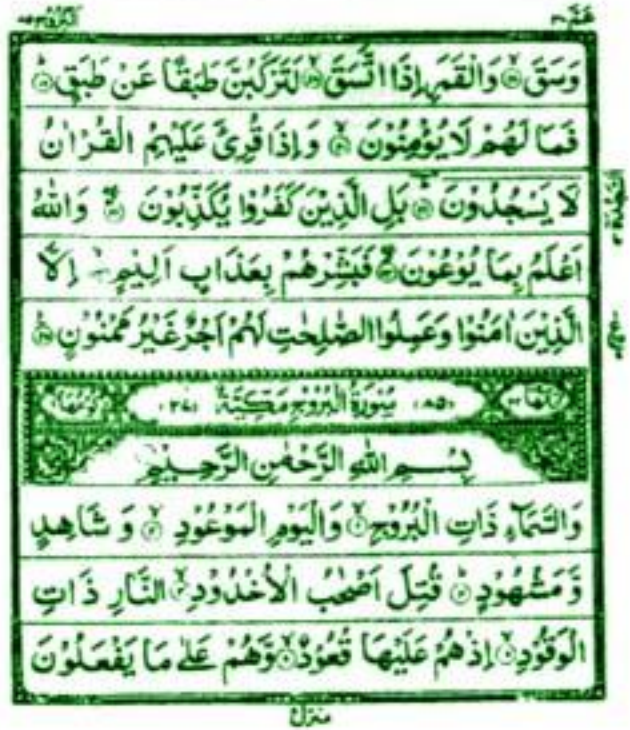 البروج ٨٥
عمّ ٣٠
وَسَقَ ۙ﴿۱۷﴾ وَالْقَمَرِ اِذَا اتَّسَقَ ۙ﴿۱۸﴾ لَتَرْكَبُنَّ طَبَقًا عَنْ طَبَقٍ ؕ﴿۱۹﴾
فَمَا لَهُمْ لَا يُؤْمِنُوْنَ ۙ﴿۲۰﴾ وَاِذَا قُرِئَ عَلَيْهِمُ الْقُرْاٰنُ
لَا يَسْجُدُوْنَ ؕ﴿۲۱﴾ بَلِ الَّذِيْنَ كَفَرُوْا يُكَذِّبُوْنَ ۖ﴿۲۲﴾ وَاللّٰهُ
اَعْلَمُ بِمَا يُوْعُوْنَ ۖ﴿۲۳﴾ فَبَشِّرْهُمْ بِعَذَابٍ اَلِيْمٍ ۙ﴿۲۴﴾ اِلَّا
الَّذِيْنَ اٰمَنُوْا وَعَمِلُوا الصّٰلِحٰتِ لَهُمْ اَجْرٌ غَيْرُ مَمْنُوْنٍ ﴿۲۵﴾
السجدة
اٰيَاتُهَا ۲۲ ﴿۸۵﴾ سُوْرَةُ الْبُرُوْجِ مَكِّيَّةٌ ﴿۲۷﴾ رُكُوْعُهَا ۱
بِسْمِ اللّٰهِ الرَّحْمٰنِ الرَّحِيْمِ
وَالسَّمَآءِ ذَاتِ الْبُرُوْجِ ۙ﴿۱﴾ وَالْيَوْمِ الْمَوْعُوْدِ ۙ﴿۲﴾ وَ شَاهِدٍ
وَّمَشْهُوْدٍ ؕ﴿۳﴾ قُتِلَ اَصْحٰبُ الْاُخْدُوْدِ ۙ﴿۴﴾ النَّارِ ذَاتِ
الْوَقُوْدِ ۙ﴿۵﴾ اِذْ هُمْ عَلَيْهَا قُعُوْدٌ ۙ﴿۶﴾ وَّهُمْ عَلٰى مَا يَفْعَلُوْنَ
منزل